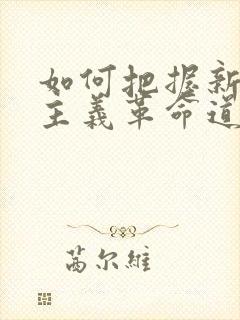 如何把握新
主義革命道
茵尔維